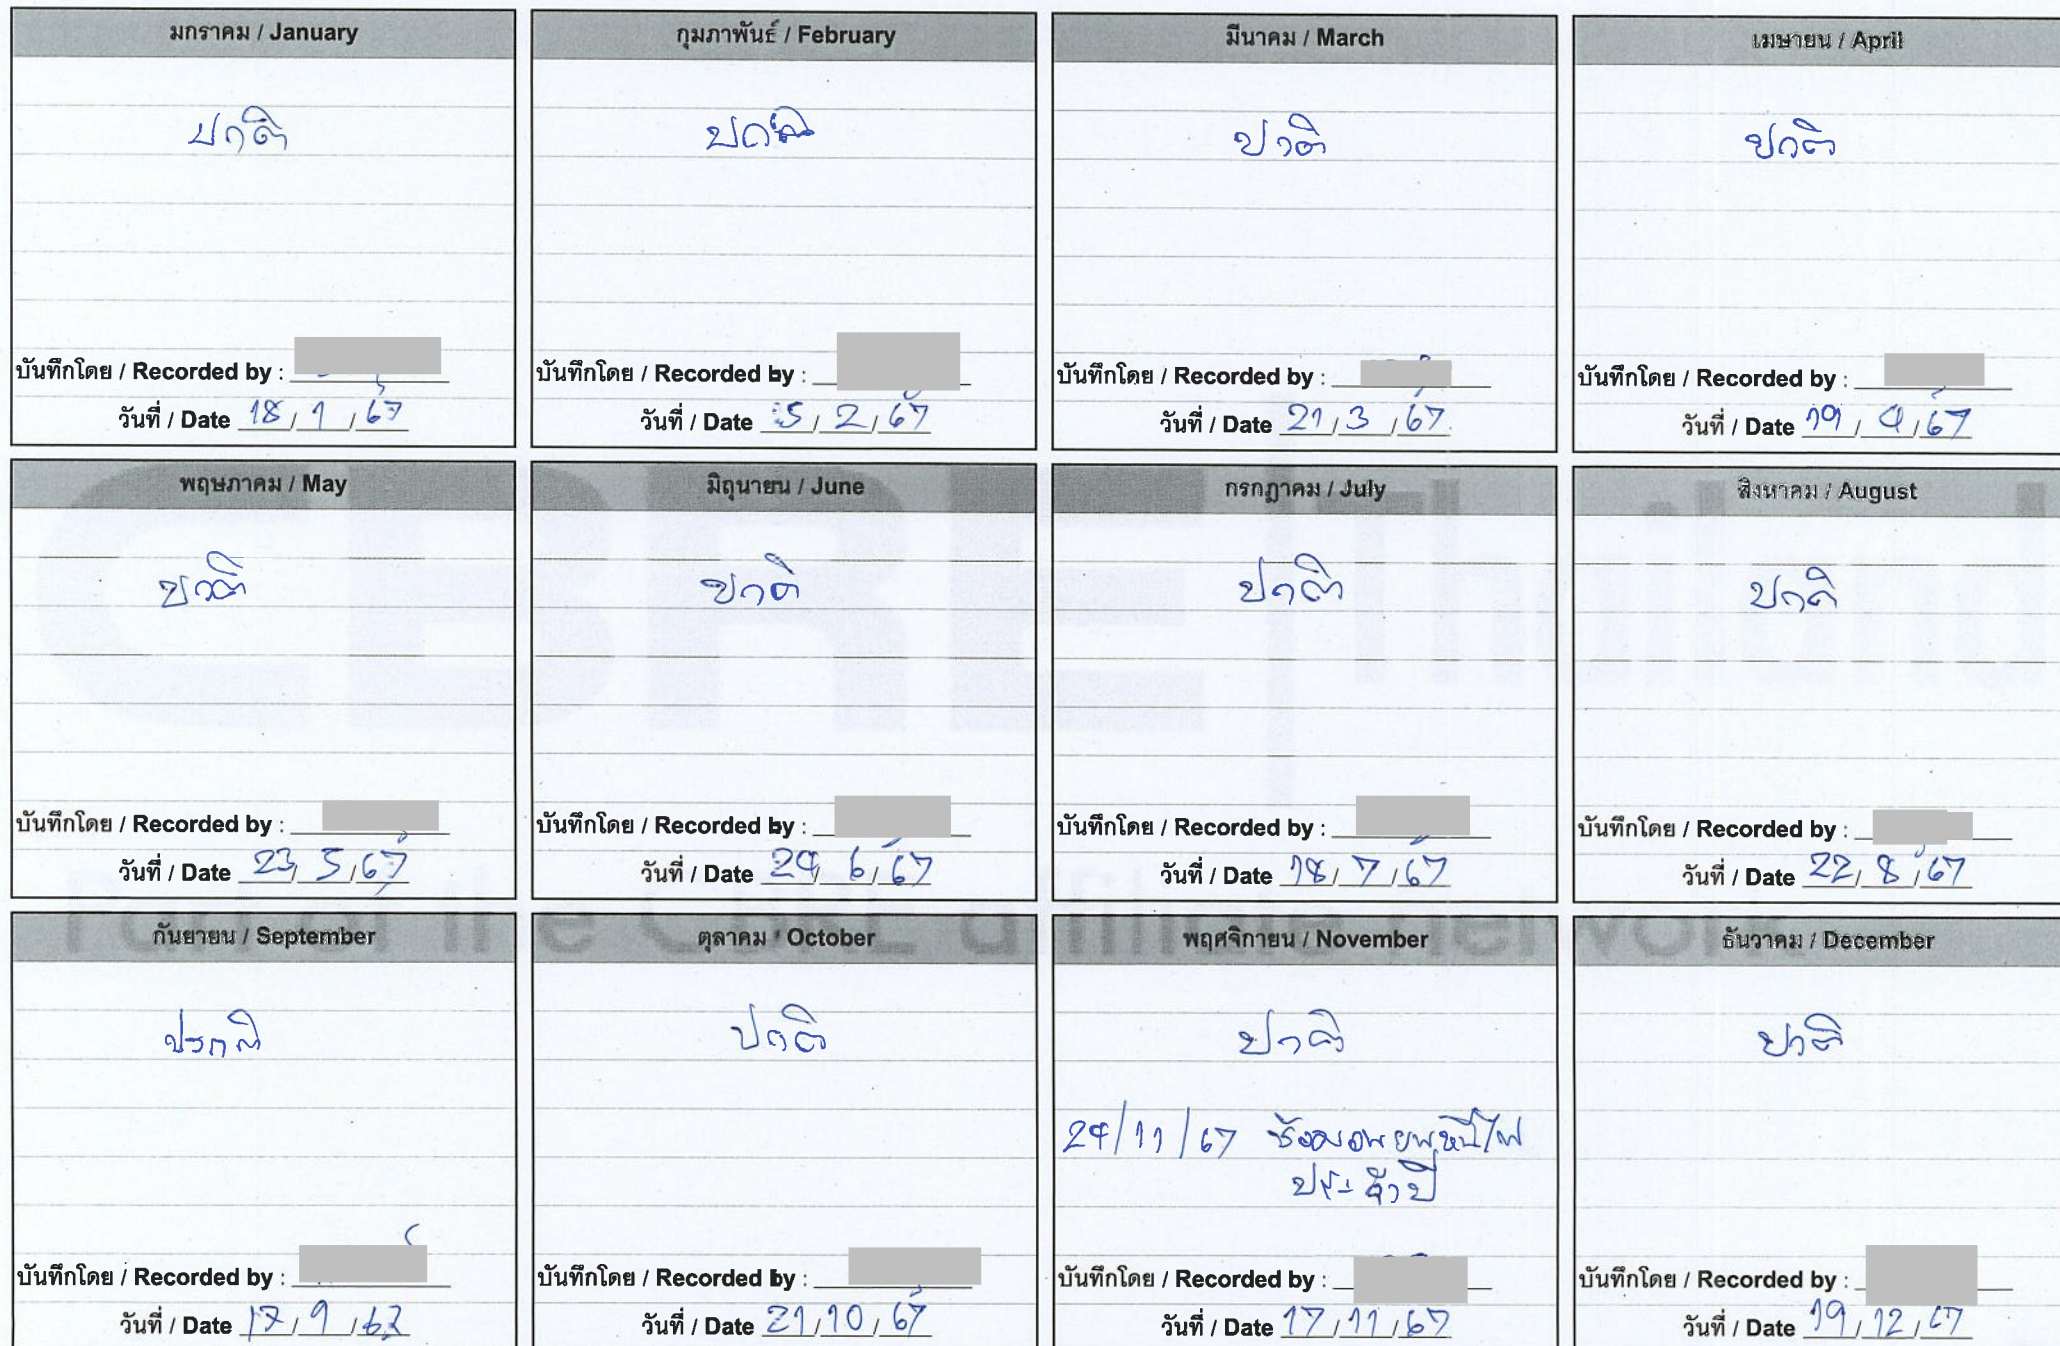 มกราคม / January
ปกติ
บันทึกโดย / Recorded by :
วันที่ / Date 18 / 1 / 67
กุมภาพันธ์ / February
ปกติ
บันทึกโดย / Recorded by :
วันที่ / Date 5 / 2 / 67
มีนาคม / March
ปกติ
บันทึกโดย / Recorded by :
วันที่ / Date 21 / 3 / 67
เมษายน / April
ปกติ
บันทึกโดย / Recorded by :
วันที่ / Date 19 / 4 / 67
พฤษภาคม / May
ปกติ
บันทึกโดย / Recorded by :
วันที่ / Date 23 / 5 / 67
มิถุนายน / June
ปกติ
บันทึกโดย / Recorded by :
วันที่ / Date 24 / 6 / 67
กรกฎาคม / July
ปกติ
บันทึกโดย / Recorded by :
วันที่ / Date 18 / 7 / 67
สิงหาคม / August
ปกติ
บันทึกโดย / Recorded by :
วันที่ / Date 22 / 8 / 67
กันยายน / September
ปรกติ
บันทึกโดย / Recorded by :
วันที่ / Date 17 / 9 / 67
ตุลาคม / October
ปกติ
บันทึกโดย / Recorded by :
วันที่ / Date 21 / 10 / 67
พฤศจิกายน / November
ปกติ
24/11/67 ซ้อมอพยพหนีไฟ
ประจำปี
บันทึกโดย / Recorded by :
วันที่ / Date 17 / 11 / 67
ธันวาคม / December
ปกติ
บันทึกโดย / Recorded by :
วันที่ / Date 19 / 12 / 67
CBRE | Thailand
Part of the CBRE affiliate network